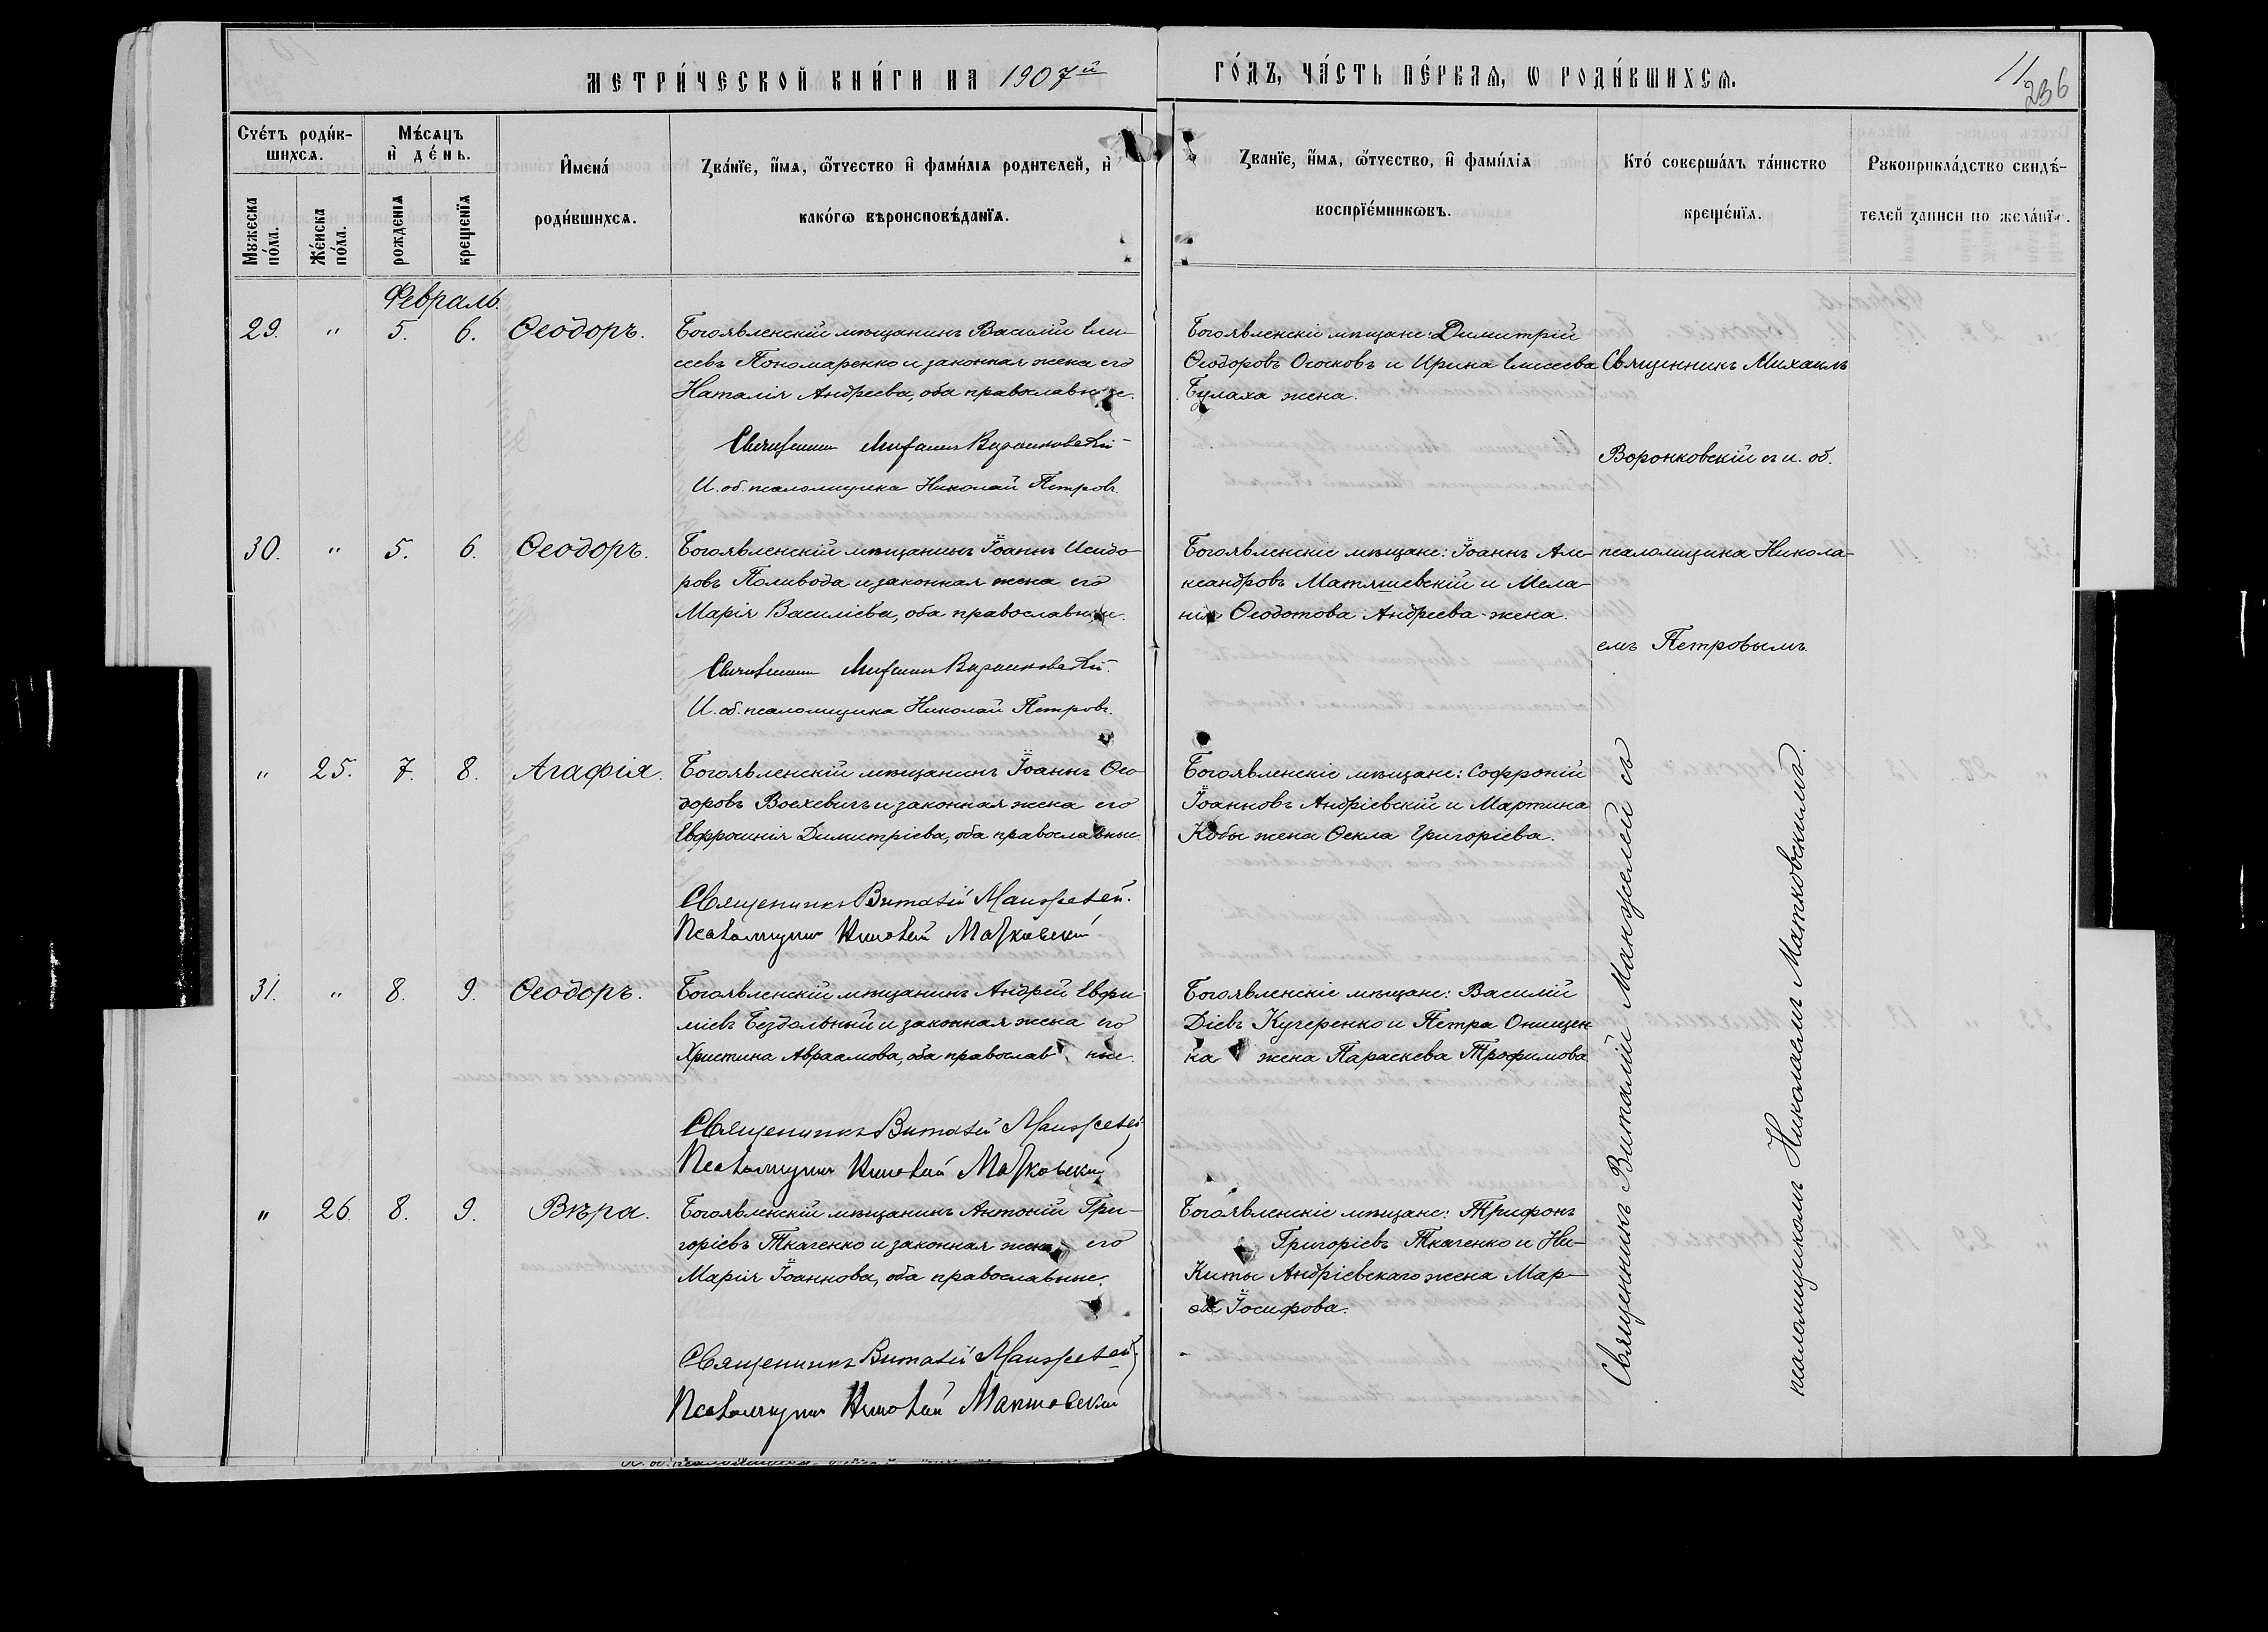 МЕТРИ́ЧЕСКОЙ КНИ́ГИ НА 1907й
ГО́ДЪ, ЧА́СТЬ ПЕ́РВАѦ, Ѡ РОДИ́ВШИХСѦ.
11
236
Счє́тъ роди́в-
шихсѧ.
Мꙋжеска
по́ла.
Же́нска
по́ла.
Мѣ́сѧцъ
и҆ де́нь.
рожденїѧ
крещенїѧ
И҆мена́
роди́вшихсѧ.
Зва́нїе, и҆́мѧ, ѻ҆́тчество и҆ фамилїѧ родителей, и҆
како́гѡ вѣроисповѣ́данїѧ.
Зва́нїе, и҆́мѧ, ѻ҆́тчество, и҆ фами́лїѧ
воспрїе́мникѡвъ.
Кто́ соверша́лъ та́инство
креще́нїѧ.
Рꙋкоприкла́дство свидѣ́-
телей записи по жела́нїю.
Февраль.
29. " 5. 6. Ѳеодоръ.
Богоявленскій мѣщанинъ Василій Ели-
сеевъ Пономаренко и законная жена его
Наталія Андреева, оба православные.
Священникъ Михаилъ Воронковскій
И. об. псаломщика Николай Петровъ.
Богоявленскіе мѣщане: Димитрій
Ѳеодоровъ Ососковъ и Ирина Елисеева
Булаха жена.
Священникъ Михаилъ
Воронковскій съ и. об.
30. " 5. 6. Ѳеодоръ.
Богоявленскій мѣщанинъ Іоаннъ Исидо-
ровъ Поливода и законная жена его
Марія Василіева, оба православные.
Священникъ Михаилъ Воронковскій.
И. об. псаломщика Николай Петровъ.
Богоявленскіе мѣщане: Іоаннъ Але-
ксандровъ Матяшевскій и Мела-
нія Ѳеодотова Андреева жена.
псаломщика Никола-
емъ Петровымъ.
" 25. 7. 8. Агафія.
Богоявленскій мѣщанинъ Іоаннъ Ѳео-
доровъ Воехевичъ и законная жена его
Евфросинія Димитріева, оба православные.
Священникъ Виталій Манжелей.
Псаломщикъ Николай Матковскій
Богоявленскіе мѣщане: Софроній
Іоанновъ Андріевскій и Мартина
Кобы жена Ѳекла Григоріева.
Священникъ Виталій Манжелей съ
псаломщикомъ Николаемъ Матковскимъ.
31. " 8. 9. Ѳеодоръ.
Богоявленскій мѣщанинъ Андрей Евфи-
міевъ Бездольный и законная жена его
Христина Авраамова, оба православные.
Священникъ Виталій Манжелей
Псаломщикъ Николай Матковскій
Богоявленскіе мѣщане: Василій
Діевъ Кучеренко и Петра Онищен-
ка жена Параскева Трофимова
" 26. 8. 9. Вѣра.
Богоявленскій мѣщанинъ Антоній Гри-
горіевъ Ткаченко и законная жена его
Марія Іоаннова, оба православные.
Священникъ Виталій Манжелей.
Псаломщикъ Николай Матковскій
Богоявленскіе мѣщане: Трифонъ
Григоріевъ Ткаченко и Ни-
киты Андріевскаго жена Мар-
ѳа Іосифова.